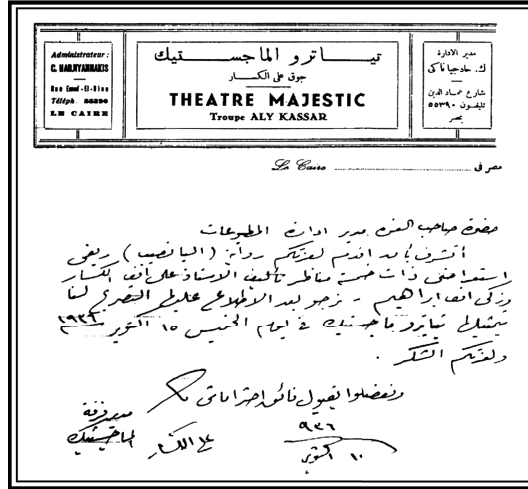 Administrateur :
C. HADJIYANNAKIS
Rue Emad-El-Dine
Téléph. 55390
LE CAIRE
تيــاترو الماجستيك
جوق علي الكسار
THEATRE MAJESTIC
Troupe ALY KASSAR
مدير الادارة
ك. حاجيياناكى
شارع عماد الدين
تليفون ٥٥٣٩٠
بمصر
Le Caire
مصر فى
حضرة صاحب العزة مدير ادارة المطبوعات
أتشرف بأن اقدم لعزتكم رواية (اليانصيب) ريفى
استعراضى ذات خمسة مناظر تأليف الاستاذ على افندى الكسار
وزكى افندى ابراهيم - نرجو بعد الاطلاع عليها التصريح لنا
بتمثيلها بتياترو ماجستيك فى يوم الخميس ١٥ اكتوبر ١٩٣٦
ولعزتكم الشكر .
وتفضلوا بقبول فائق احتراماتى
مدير فرقة
الماجستيك
على الكسار
٩٣٦
١٠ اكتوبر